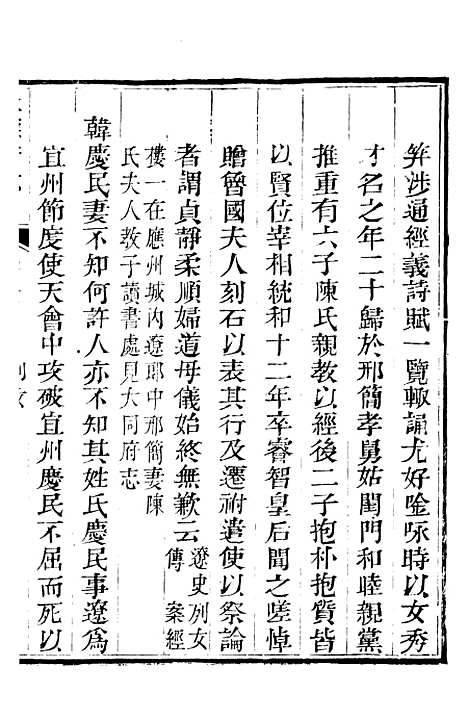 笄涉通經義詩賦一覽輙誦尤好唫咏時以女秀
才名之年二十歸於邢簡孝舅姑閨門和睦親黨
推重有六子陳氏親教以經後二子抱朴抱質皆
以賢位宰相統和十二年卒睿智皇后聞之嗟悼
贈魯國夫人刻石以表其行及遷祔遣使以祭論
者謂貞靜柔順婦道母儀始終無歉云遼史列女
傳　案經
樓一在應州城內遼郎中邢簡妻陳
氏夫人教子讀書處見大同府志
韓慶民妻不知何許人亦不知其姓氏慶民事遼爲
宜州節度使天會中攻破宜州慶民不屈而死以
列女